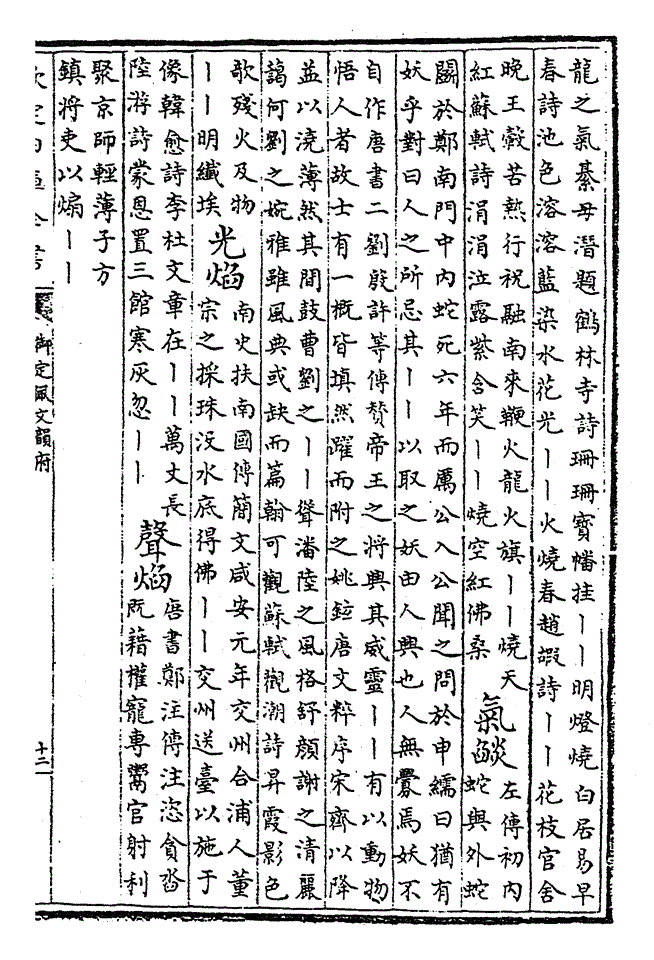 龍之氣綦毋潛題鶴林寺詩珊珊寶幡挂丨丨明燈燒白居易早
春詩池色溶溶藍染水花光丨丨火燒春趙嘏詩丨丨花枝官舍
晚王轂苦熱行祝融南來鞭火龍火旗丨丨燒天
紅蘇軾詩涓涓泣露紫含笑丨丨燒空紅佛桑
氣燄
左傳初内
蛇與外蛇
鬭於鄭南門中内蛇死六年而厲公入公聞之問於申繻曰猶有
妖乎對曰人之所忌其丨丨以取之妖由人興也人無釁焉妖不
自作唐書二劉殷許等傳贊帝王之將興其威靈丨丨有以動物
悟人者故士有一概皆填然躍而附之姚鉉唐文粹序宋齊以降
益以澆薄然其間鼓曹劉之丨丨聳潘陸之風格舒顔謝之清麗
藹何劉之婉雅雖風典或缺而篇翰可觀蘇軾觀潮詩昇霞影色
歌殘火及物
丨丨明纖埃
光焰
南史扶南國傳簡文咸安元年交州合浦人董
宗之採珠没水底得佛丨丨交州送臺以施于
像韓愈詩李杜文章在丨丨萬丈長
陸游詩蒙恩置三館寒灰忽丨丨
聲焰
唐書鄭注傳注恣貪沓
既藉權寵專鬻官射利
聚京師輕薄子方
鎮將吏以煽丨丨
欽定四庫全書
御定佩文韻府
十二